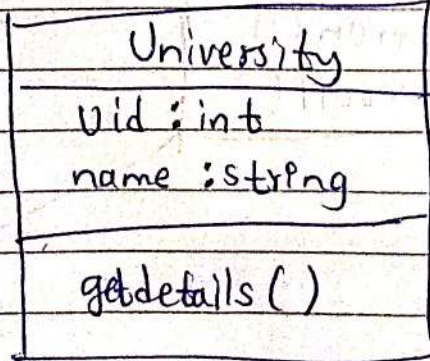 University
Uid : int
name : string
getdetails ( )